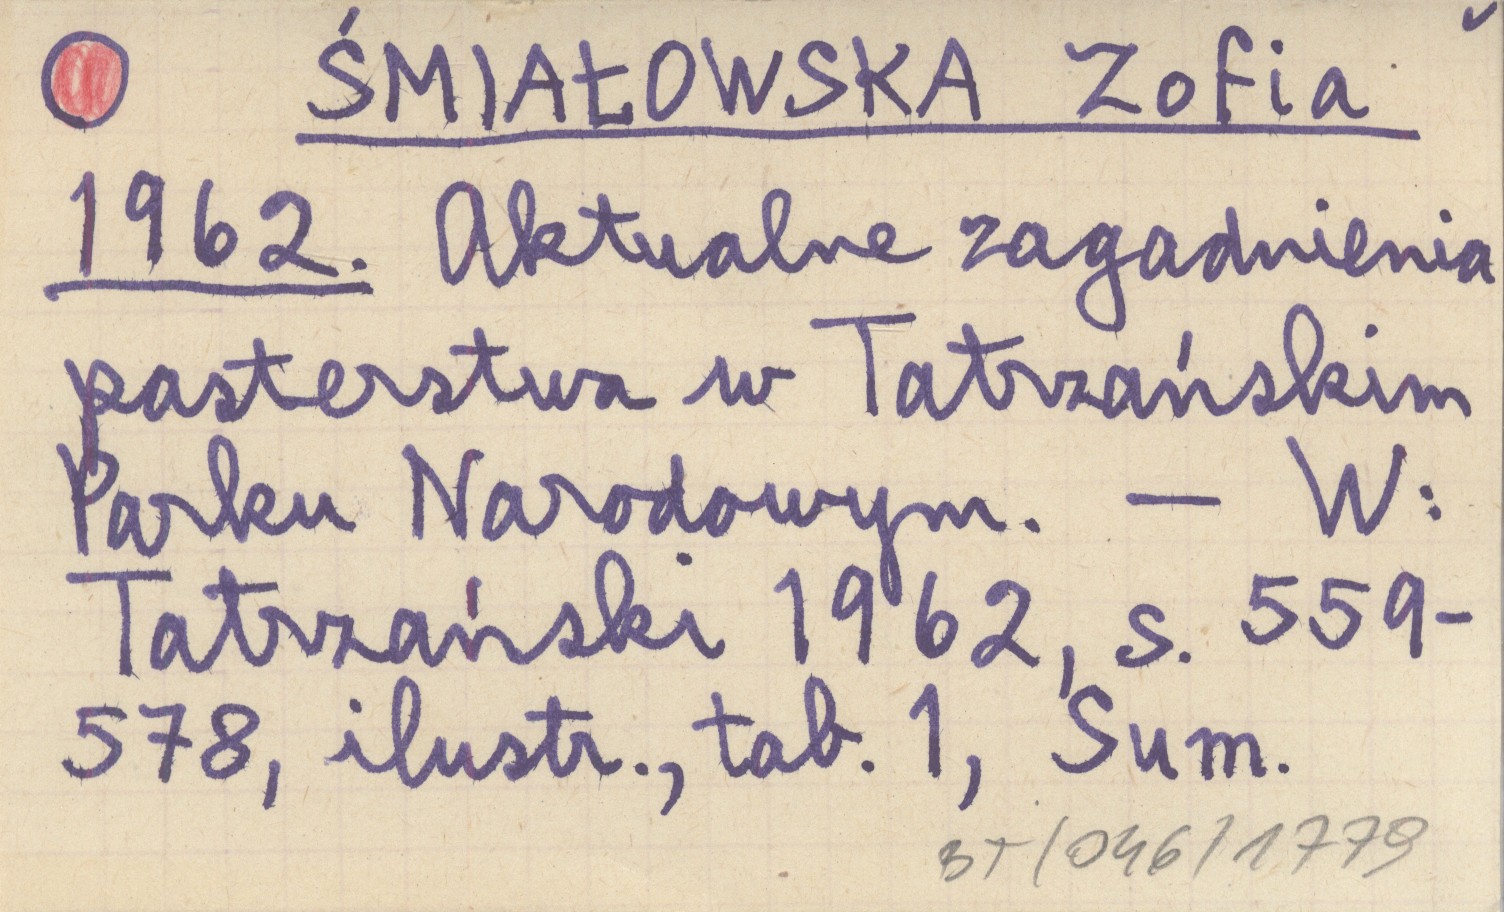 ŚMIAŁOWSKA Zofia
1962. Aktualne zagadnienia
pasterstwa w Tatrzańskim
Parku Narodowym. — W:
Tatrzański 1962, s. 559-
578, ilustr., tab. 1, Sum.
BT/046/1779